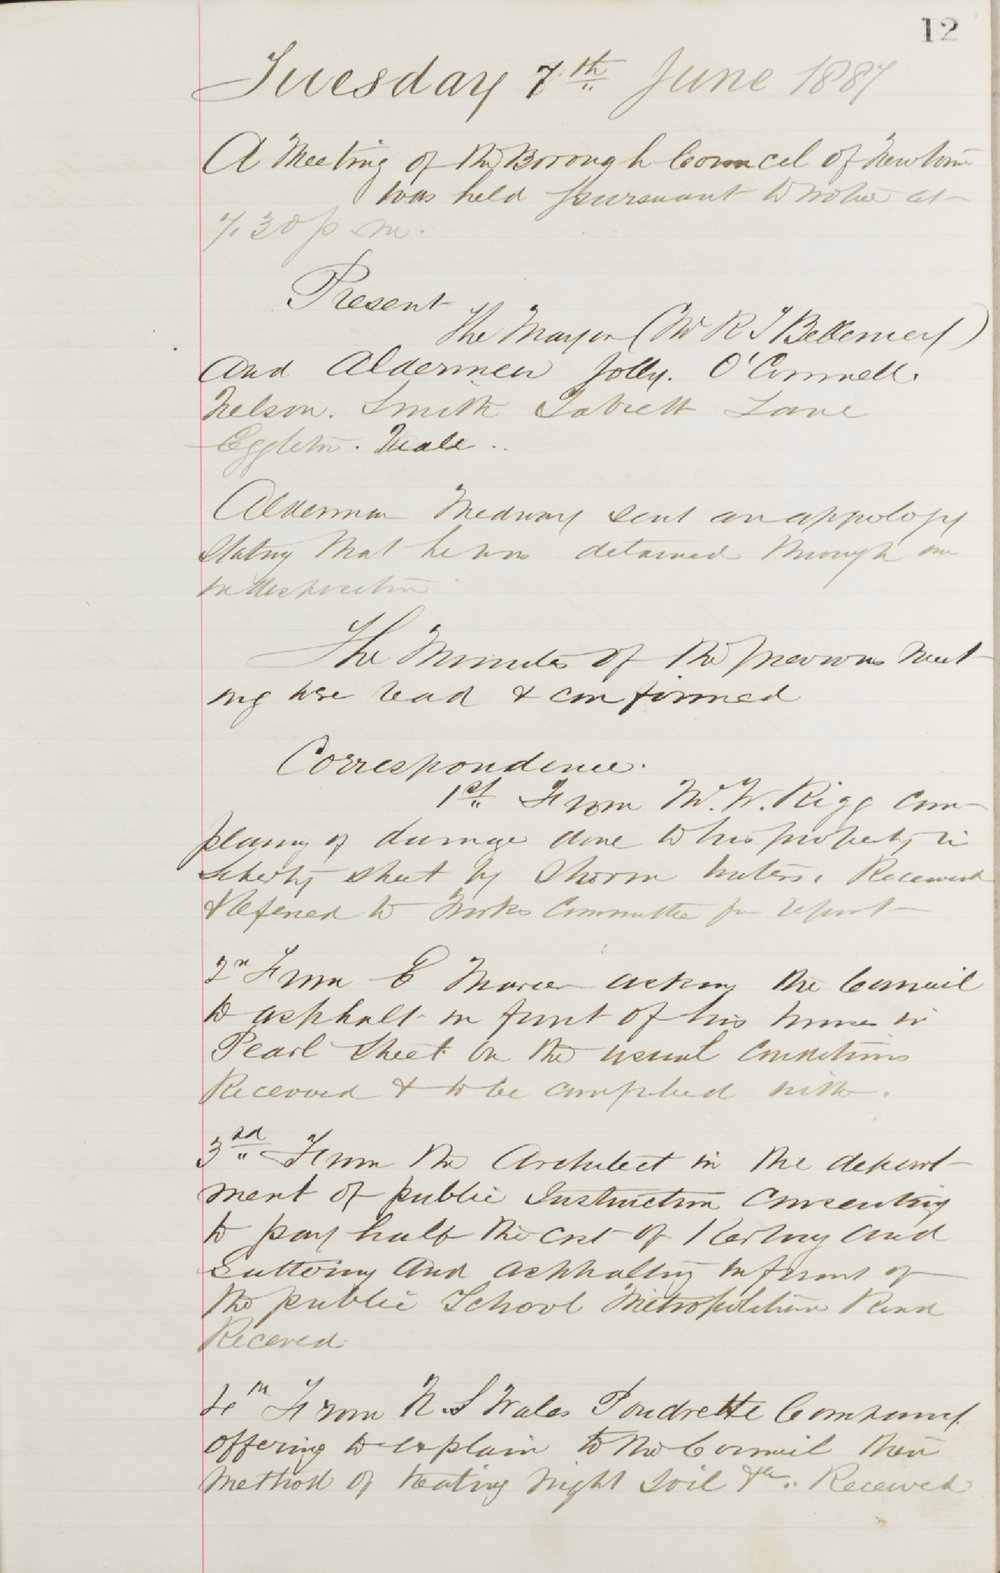 12
Tuesday 7th June 1887
A Meeting of the Borough Council of Newtown
was held pursuant to notice at
7.30 p.m.
Present
The Mayor (Mr R T Bellemey)
and Aldermen Jolly. O'Connell.
Nelson. Smith Gabrett Lane
Eggleton. Neale ..
Alderman Medway sent an appology
stating that he was detained through an
indisposition
The Minutes of the previous meet
ing were read & confirmed
Correspondence.
1st From Mr. W. Rigg com-
plaing of damage done to his property in
Liberty street by Storm waters. Received
& Refered to Works Committee for report
2n From E asking the Council
to asphalt in front of his house in
Pearl Street on the usual conditions
Received & to be complied with.
3rd From the Architect in the depart-
ment of public Instruction consenting
to pay half the cost of Kerbing and
Guttering and asphalting in front of
the public School Metropolitan Road
Received
4th From N. S Wales Poudrette Company
offering to explain to the Council their
method of treating Night Soil &c.. Received